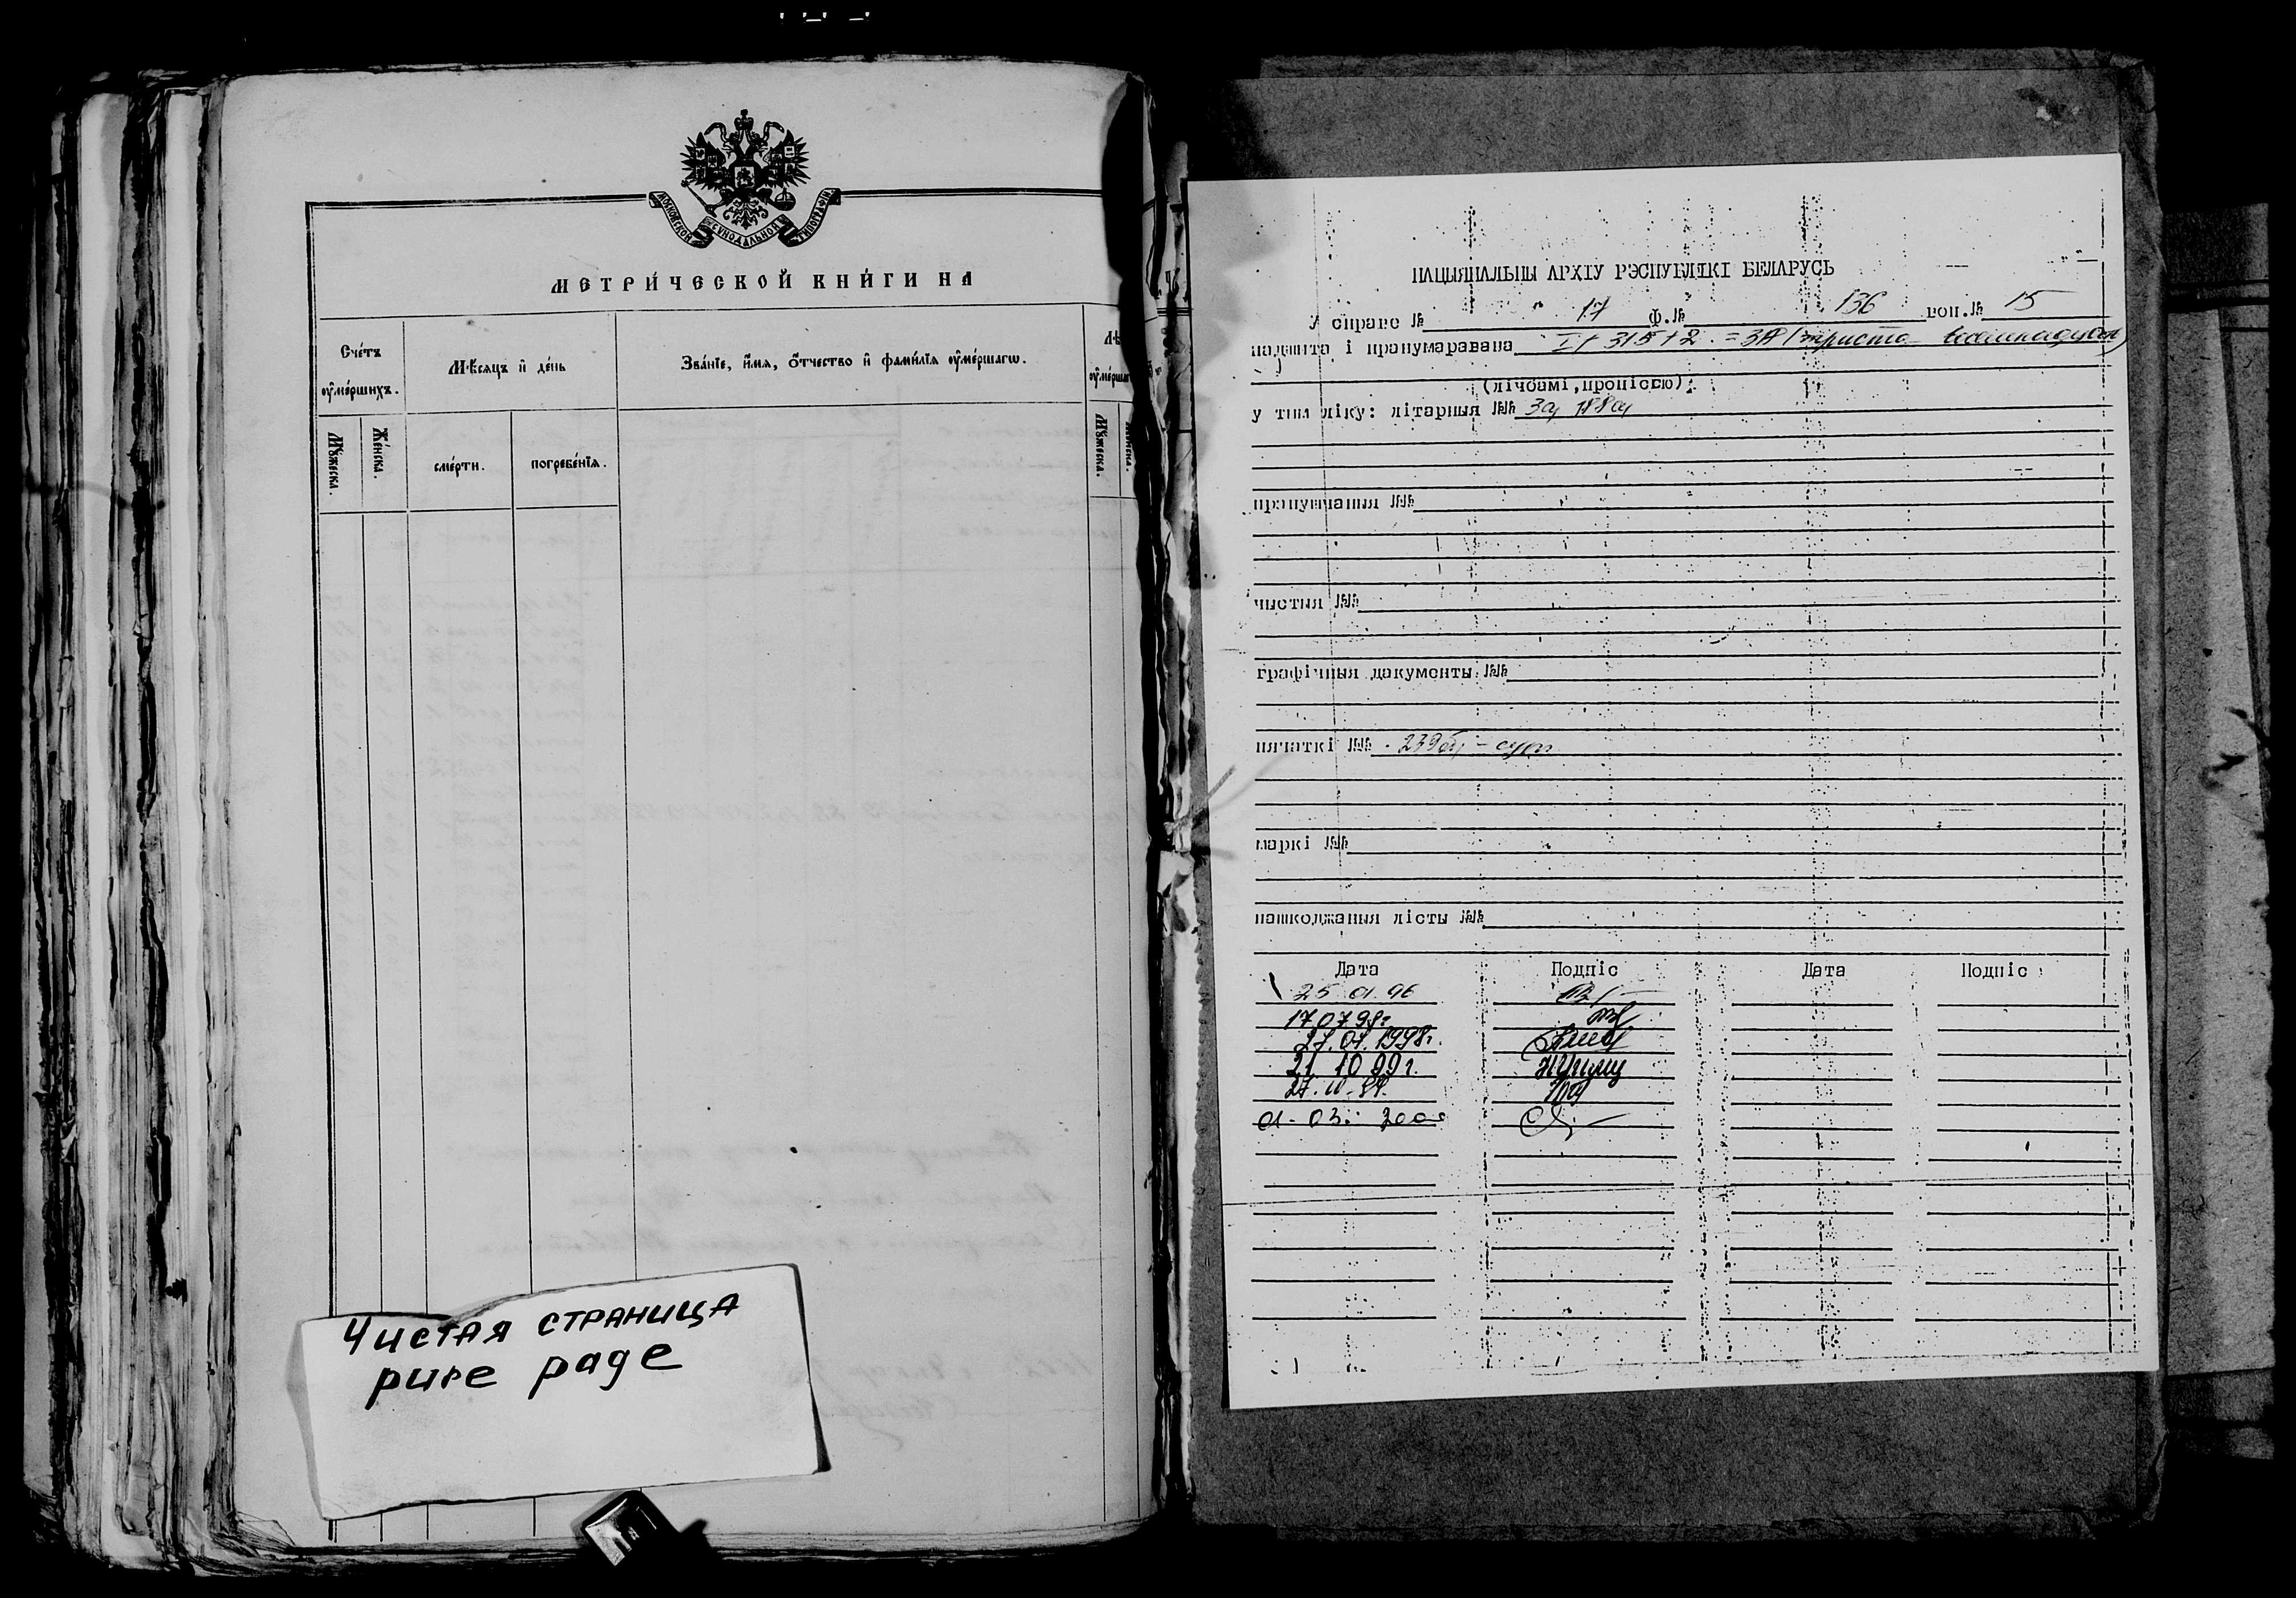 МОСКОВСКОЙ СѴНОДАЛЬНОЙ ТИПОГРАФІИ
МЕТРИ́ЧЕСКОЙ КНИ́ГИ НА
Сче́тъ ᲂу҆ме́ршихъ.
Мѣ́сяцъ и҆ де́нь
Зва́нїе, и҆́мѧ, ѻ҆́тчество и҆ фами́лїѧ ᲂу҆ме́ршагѡ.
Мꙋ́жеска.
Же́нска.
сме́рти.
погребе́нїѧ.
Мꙋ́жеска.
Чистая страница
pure page
НАЦЫЯНАЛЬНЫ АРХІЎ РЭСПУБЛІКІ БЕЛАРУСЬ
У справе № 17 ф.№ 136 воп.№ 15
падшыта і пранумаравана I + 315 + 2 = 318 (трыста васемнаццаць)
(лічбамі, пропіссю)
у тым ліку: літарныя №№ 3а, 188а
прапушчаныя №№
чыстыя №№
графічныя дакументы №№
пячаткі №№ 239а
маркі №№
пашкоджаныя лісты №№
Дата Подпіс Дата Подпіс
25 01. 96
17 07 98г
27.07.1998г.
21 10 99г.
01-03. 2000